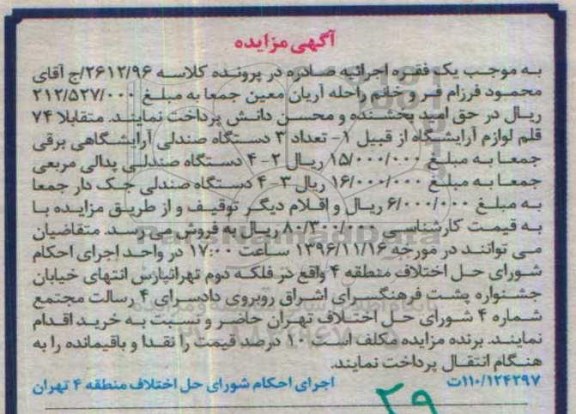 آگهی مزایده
به موجب یک فقره اجرائیه صادره در پرونده کلاسه ۲۶۱۲/۹۶/ج آقای
محمود فرزام فر و خانم راحله آریان معین جمعا به مبلغ ۲۱۲/۵۲۷/۰۰۰
ریال در حق امید بخشنده و محسن دانش پرداخت نمایند. متقابلا ۷۴
قلم لوازم آرایشگاه از قبیل ۱- تعداد ۳ دستگاه صندلی آرایشگاهی برقی
جمعا به مبلغ ۱۵/۰۰۰/۰۰۰ ریال ۲- ۴ دستگاه صندلی پدالی مربعی
جمعا به مبلغ ۱۶/۰۰۰/۰۰۰ ریال ۳- ۴ دستگاه صندلی جک دار جمعا
به مبلغ ۶/۰۰۰/۰۰۰ ریال و اقلام دیگر توقیف و از طریق مزایده با
به قیمت کارشناسی ۸۰/۳۰۰/۰۰۰ ریال به فروش می رسد. متقاضیان
می توانند در مورخه ۱۳۹۶/۱۱/۱۶ ساعت ۱۷:۰۰ در واحد اجرای احکام
شورای حل اختلاف منطقه ۴ واقع در فلکه دوم تهرانپارس انتهای خیابان
جشنواره پشت فرهنگسرای اشراق روبروی دادسرای ۴ رسالت مجتمع
شماره ۴ شورای حل اختلاف تهران حاضر و نسبت به خرید اقدام
نمایند. برنده مزایده مکلف است ۱۰ درصد قیمت را نقدا و باقیمانده را به
هنگام انتقال پرداخت نمایند.
۱۱۰/۱۲۴۲۹۷ت اجرای احکام شورای حل اختلاف منطقه ۴ تهران
۲۹